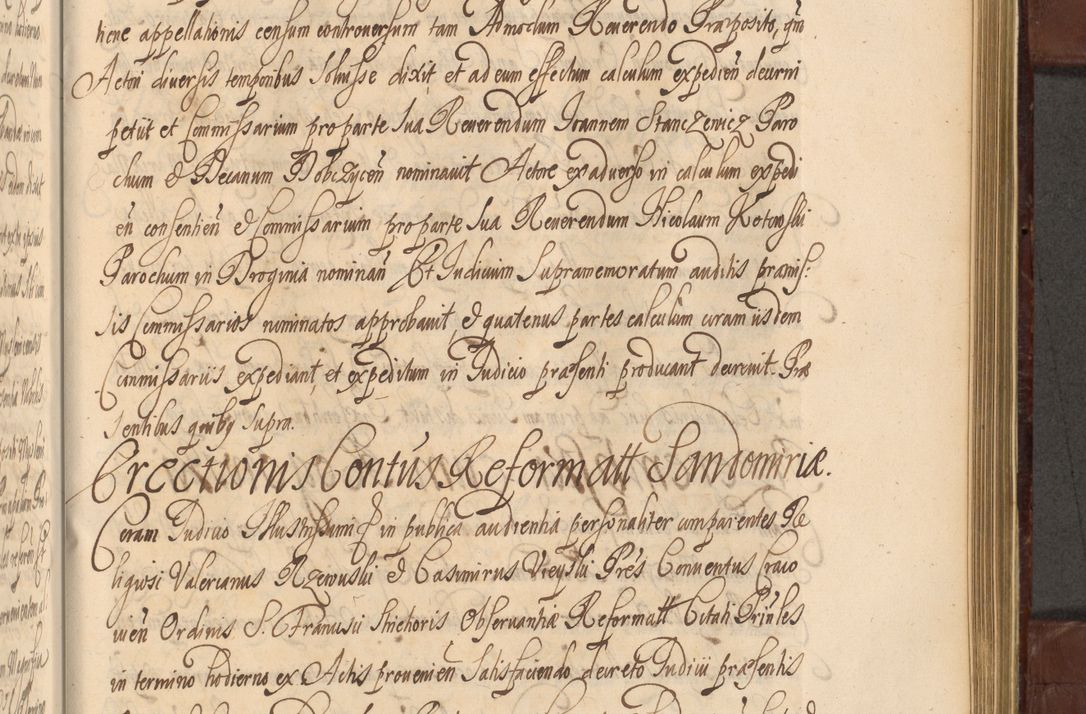 tiene appellationis censum controversum tam Admodum Reuerendo Præposito, qm̃
Actori diuersis temporibus soluisse dixit et ad eum effectum calculum expedien̄ decerni
petiit et Commissarium pro parte sua Reuerendum Joannem Stanczewicz Paro
chum & Decanum Dobczycen̄ nominauit Actore ex aduerso in calculum expedi
en̄ consentien̄ & Commissarium pro parte sua Reuerendum Nicolaum Kotwoski
Parochum in Droginia nominan̄ Et Iudicium supramemoratum auditis præmis:
sis Commissarios nominatos approbauit & quatenus partes calculum coram iisdem
Commissariis expediant, et expeditum in Iudicio præsenti producant decreuit. Præ
sentibus quibq supra.
Erectionis Contus Reformatt Sandomiriæ.
Coram Iudicio Illustrissimi & in publica audientia personaliter comparentes Re
ligiosi Valerianus Rzewuski & Casimirus Vieyski Pres Conuentus Craco
uien̄ Ordinis S. Francisci strictioris Obseruantiæ Reformatt Citati Prin̄les
in termino hodierno ex Actis prouenien̄ satisfaciendo decreto Iudicii præsentis